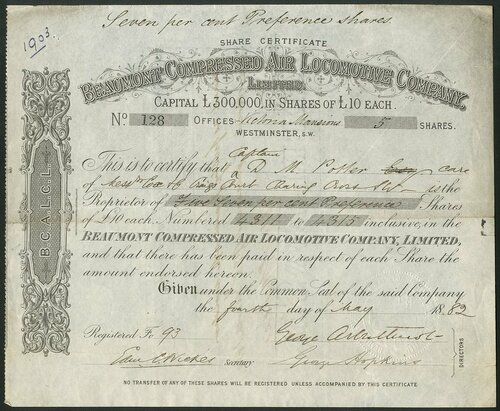 1903.
Seven per cent Preference shares.
SHARE CERTIFICATE
BEAUMONT COMPRESSED AIR LOCOMOTIVE COMPANY,
LIMITED.
CAPITAL £300,000, IN SHARES OF £10 EACH.
No 128 OFFICES Victoria Mansions 5 SHARES.
WESTMINSTER, S.W.
Captain
This is to certify that D. M. Potter care
of Cox & Craigs Court Charing Cross is the
Proprietor of Five Seven per cent Preference Shares
of £10 each. Numbered 4311 to 4315 inclusive, in the
BEAUMONT COMPRESSED AIR LOCOMOTIVE COMPANY, LIMITED,
and that there has been paid in respect of each Share the
amount endorsed hereon.
Given under the Common Seal of the said Company
the fourth day of May 1882
Registered Fo 93
George Arbuthnot
Secretary George Hopkins
DIRECTORS
B.C.A.L.C.L.
NO TRANSFER OF ANY OF THESE SHARES WILL BE REGISTERED UNLESS ACCOMPANIED BY THIS CERTIFICATE